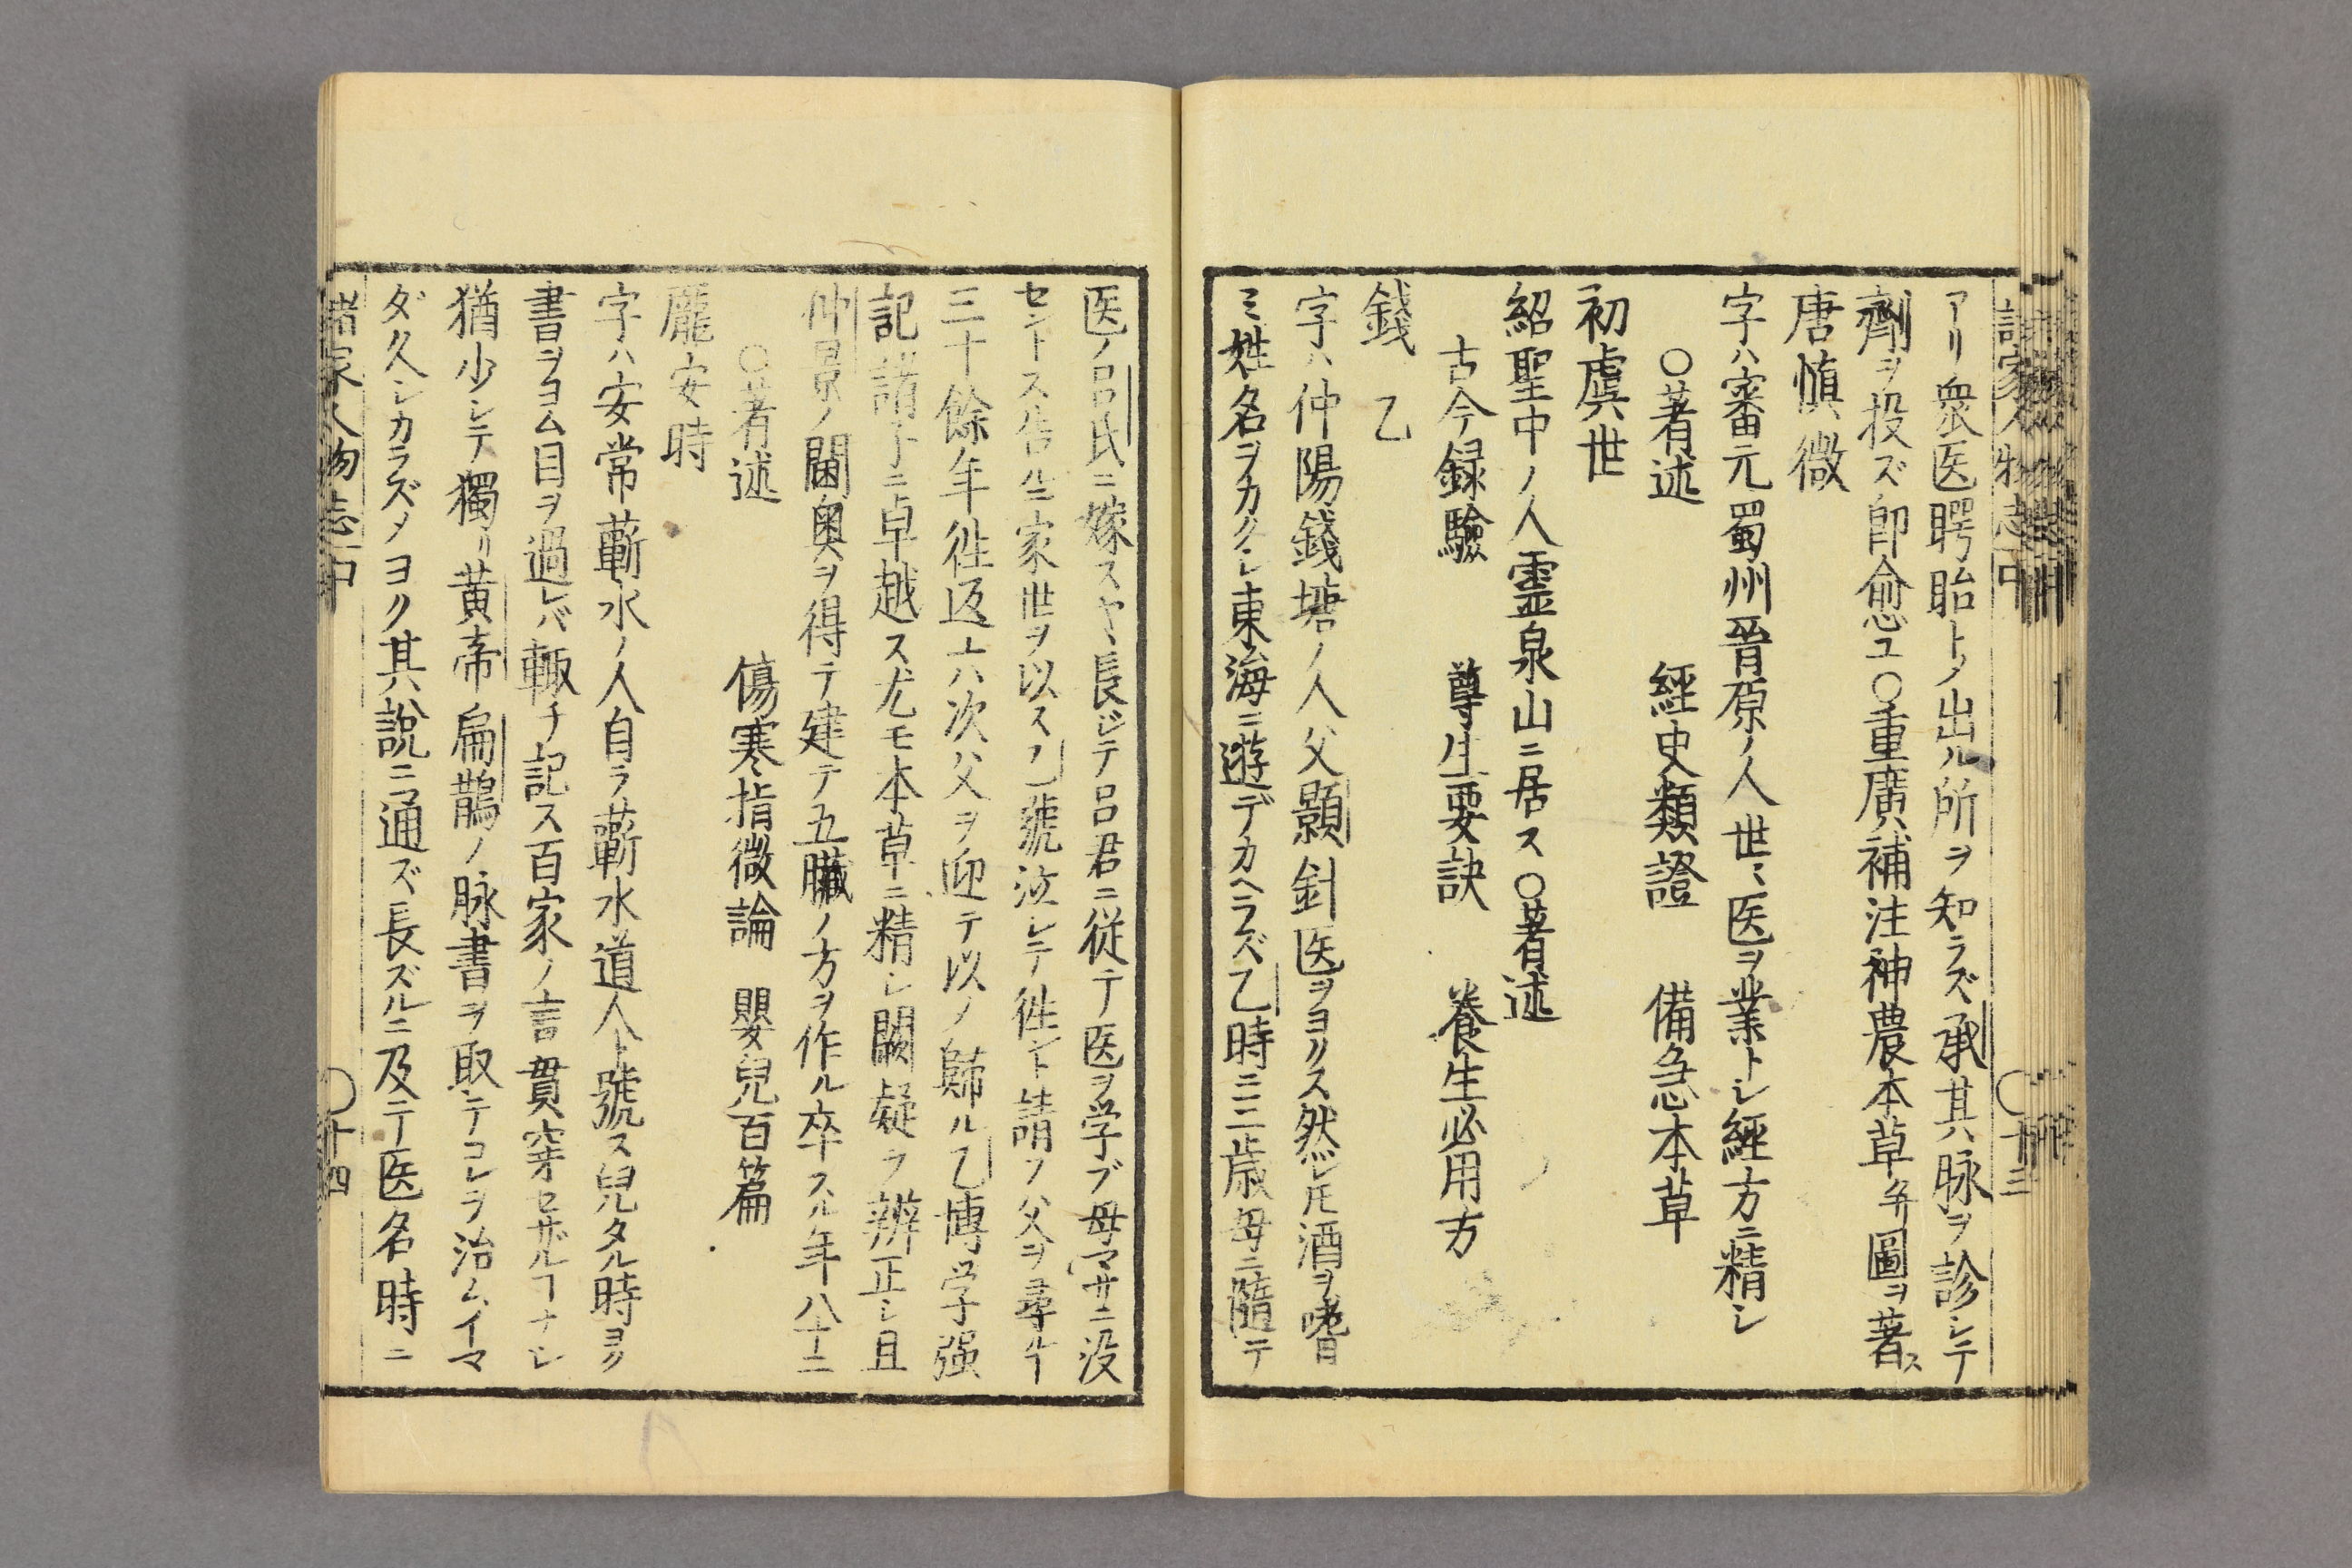 アリ衆医聹眙トノ出ル所ヲ知ラズ承其脉ヲ診シテ
劑ヲ投ズ卽愈ユ〇重廣補注神農本草并圖ヲ著ス
唐慎微
字ハ審元蜀州晉原ノ人世ミ医ヲ業トシ經方ニ精シ
〇著述 經史類證 備急本草
初虞世
紹聖中ノ人靈泉山ニ居ス〇著述
古今録驗 尊生要訣 養生必用方
錢乙
字ハ仲陽錢塘ノ人父顥針医ヲヨクス然レ𪜈酒ヲ嗜
ミ姓名ヲカクシ東海ニ遊デカヘラズ乙時ニ三歳母ニ隨テ
諸家人物志中 〇十三
医ノ呂氏ニ嫁スヤヽ長ジテ呂君ニ従テ医ヲ学ブ母マサニ没
セントス告ルニ家世ヲ以ス乙號泣シテ徃ント請フ父ヲ尋ルヿ
三十餘年徃返六次父ヲ迎テ以ノ歸ル乙博学强
記諸下ニ卓越ス尤モ本草ニ精シ闕疑ヲ辨正シ且
仲景ノ閫奥ヲ得テ建テ五臟ノ方ヲ作ル卒スル年八十二
〇著述 傷寒指微論 嬰兒百篇
龐安時
字ハ安常蘄水ノ人自ラ蘄水道人ト號ス兒タル時ヨク
書ヲヨム目ヲ過レバ輙チ記ス百家ノ言貫穿セザルヿナシ
猶少シテ獨リ黄帝扁鵲ノ脉書ヲ取テコレヲ治ム、イマ
ダ久シカラズノヨク其説ニ通ズ長ズルニ及テ医名時ニ
諸家人物志中 〇十四